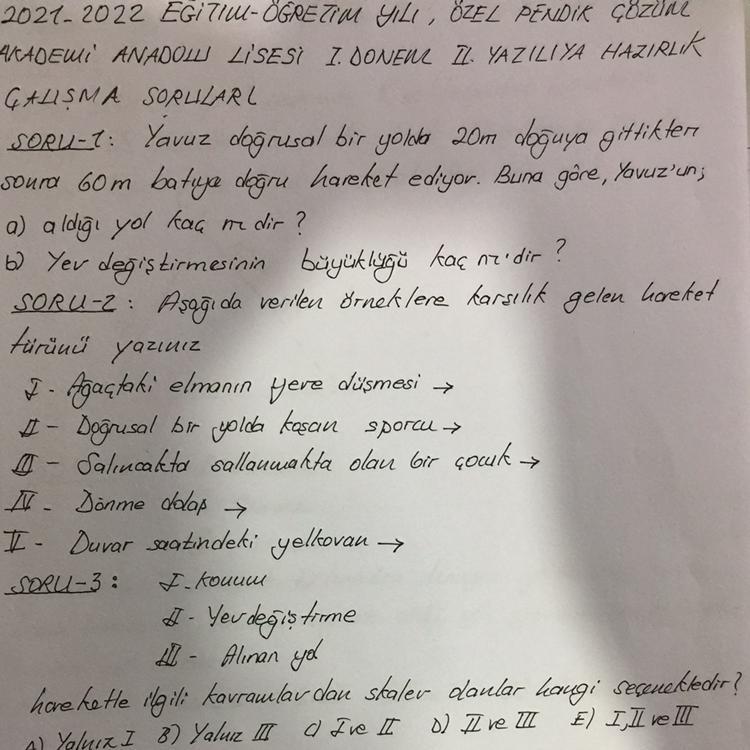 2021-2022 EĞİTİM-ÖĞRETİM YILI, ÖZEL PENDİK ÇÖZÜM
AKADEMİ ANADOLU LİSESİ I. DÖNEM II. YAZILIYA HAZIRLIK
ÇALIŞMA SORULARI
SORU-1: Yavuz doğrusal bir yolda 20m doğuya gittikten
sonra 60m batıya doğru hareket ediyor. Buna göre, Yavuz'un;
a) aldığı yol kaç m dir?
b) Yer değiştirmesinin büyüklüğü kaç m'dir?
SORU-2: Aşağıda verilen örneklere karşılık gelen hareket
türünü yazınız
I - Ağaçtaki elmanın yere düşmesi →
II - Doğrusal bir yolda koşan sporcu →
III - Salıncakta sallanmakta olan bir çocuk →
IV - Dönme dolap →
V - Duvar saatindeki yelkovan →
SORU-3: I - konum
II - Yerdeğiştirme
III - Alınan yol
hareketle ilgili kavramlardan skaler olanlar hangi seçenektedir?
A) Yalnız I B) Yalnız III C) I ve II D) II ve III E) I, II ve III